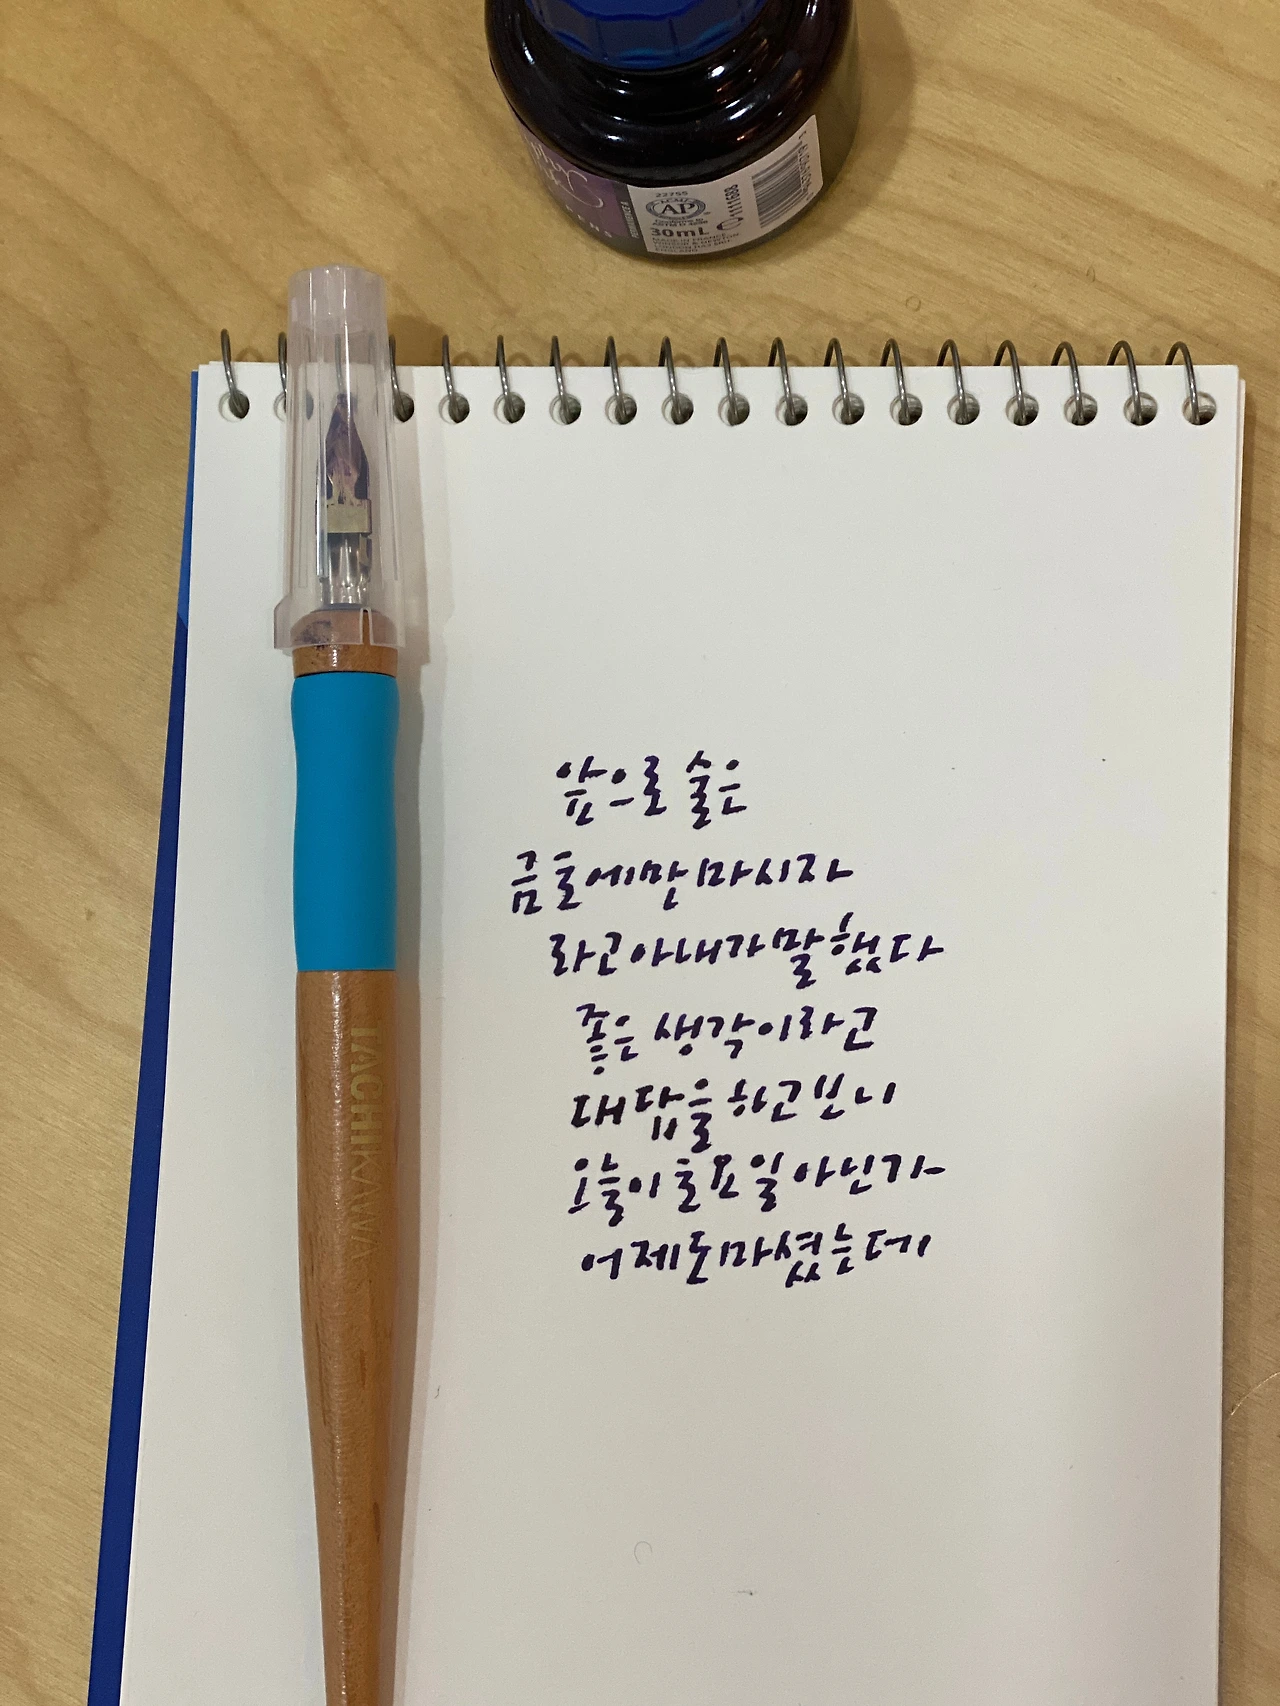 22755
AP
30mL
MADE IN FRANCE
1111688
TACHIKAWA
앞으로 술은
금토에만 마시자
라고 아내가 말했다
좋은 생각이라고
대답을 하고 보니
오늘이 토요일 아닌가
어제도 마셨는데